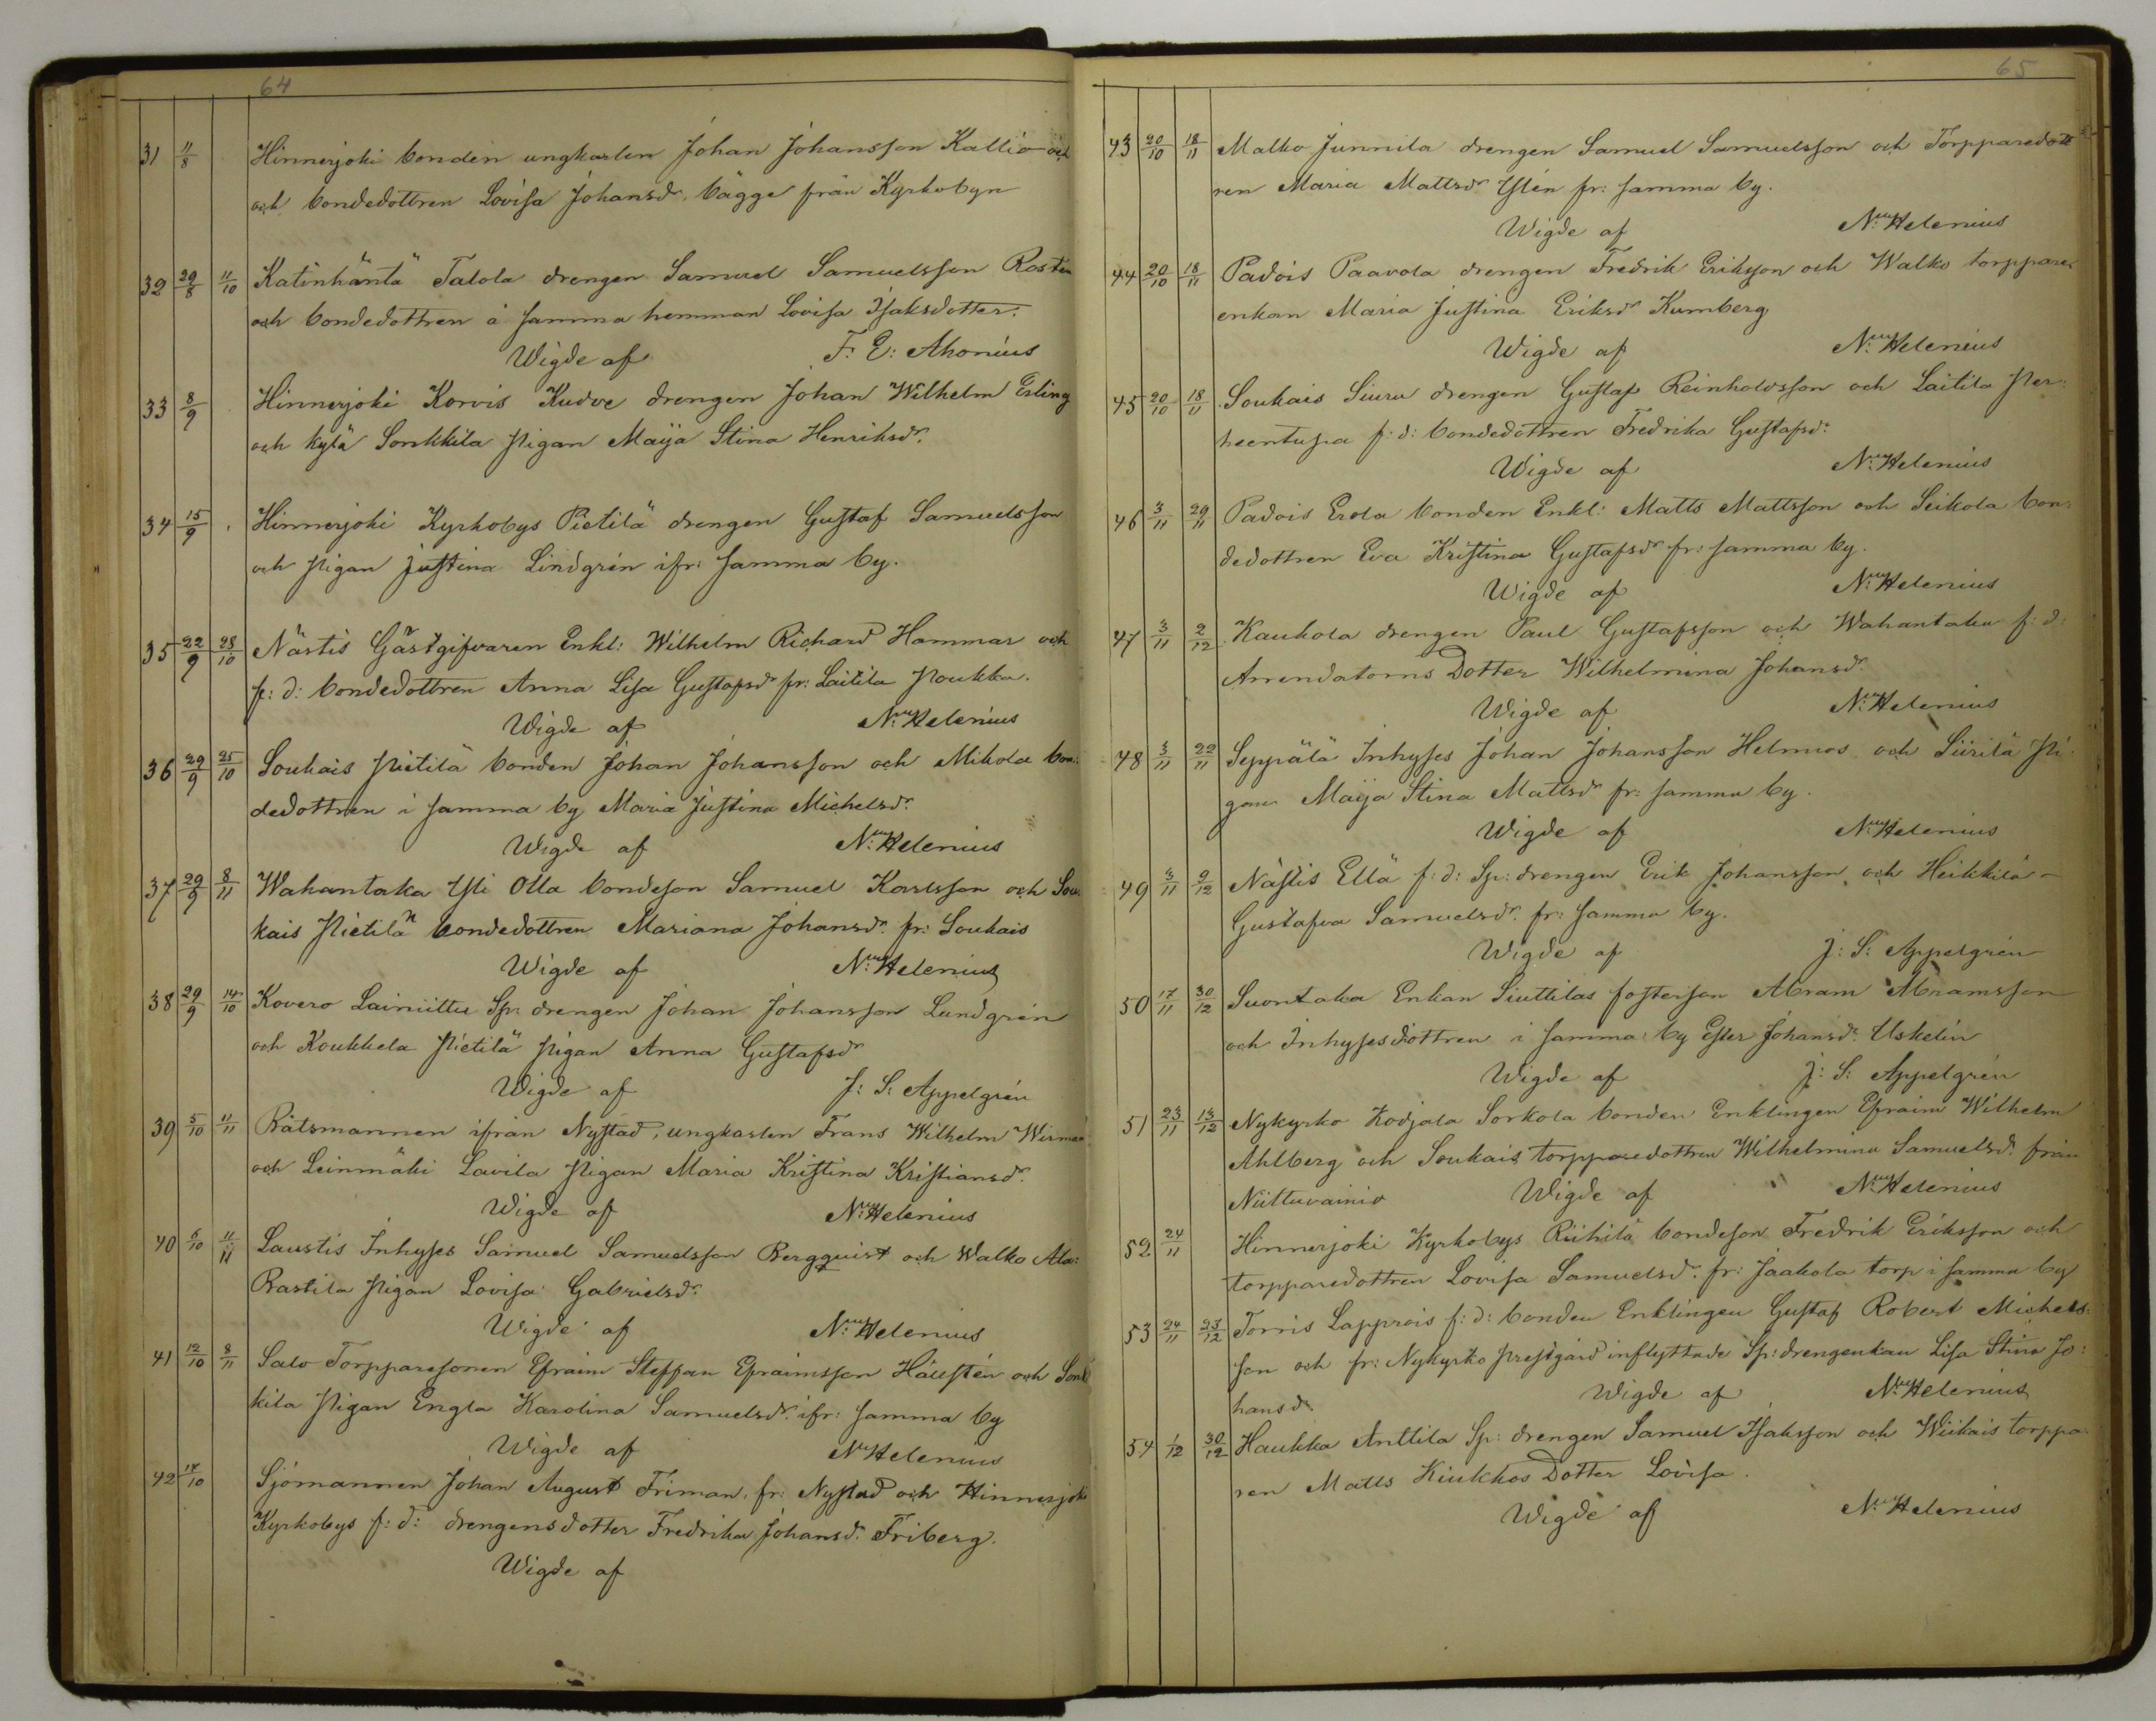 64
31 11/8 Hinnerjoki bonden ungkarlen Johan Johansson Kallio och
och bondedottren Lovisa Johansdr. bägge från Kyrkobyn
32 29/8 11/10 Katinhäntä Talola drengen Samuel Samuelsson Rostén
och bondedottren å samma hemman Lovisa Isaksdotter.
Wigde af F. E: Ahonius
33 8/9 Hinnerjoki Korvis Kudve drengen Johan Wilhelm Erling
och Kylä Sonkkila pigan Maija Stina Henriksdr.
34 15/9 Hinnerjoki Kyrkobys Pietilä drengen Gustaf Samuelsson
och pigan Justina Lindgrén ifr: samma by.
35 22/9 28/10 Nästis Gästgifvaren Enkl: Wilhelm Richard Hammar och
f: d: bondedottren Anna Lisa Gustafsdr fr: Laitila Poukka.
Wigde af N: Helenius
36 29/9 25/10 Soukais Pietilä bonden Johan Johansson och Mikola bon:
dedottren i samma by Maria Justina Michelsdr.
Wigde af N: Helenius
37 29/9 8/11 Wahantaka Yli Olla bondeson Samuel Karlsson och Sou
kais Pietilä bondedottren Mariana Johansdr. fr: Soukais
Wigde af N: Helenius
38 29/9 14/10 Kovero Lainiittu Sp: drengen Johan Johansson Lundgrén
och Koukkela Pietilä pigan Anna Gustafsdr
Wigde af J: S: Appelgrén
39 5/10 11/11 Råtsmannen ifrån Nystad, ungkarlen Frans Wilhelm
och Leinmäki Lavila pigan Maria Kristina Kristiansdr.
Wigde af N: Helenius
40 6/10 11/11 Laustis Inhyses Samuel Samuelsson Bergquist och Walko Ala:
Rastila pigan Lovisa Gabrielsdr.
Wigde af N: Helenius
41 12/10 8/11 Salo Torpparesonen Efraim Steffan Efraimsson Häusten och Sonk
kila pigan Engla Karolina Samuelsdr. ifr: samma by
Wigde af N: Helenius
42 17/10 Sjömannen Johan August Friman, fr: Nystad och Hinnerjoki
Kyrkobys f: d: drengens dotter Fredrika Johansd. Friberg.
Wigde af
65
43 20/10 18/11 Malko Junnila drengen Samuel Samuelsson och Torpparedott
ren Maria Mattsdr Ylén fr: samma by.
Wigde af N: Helenius
44 20/10 18/11 Padois Paavola drengen Fredrik Eriksson och Walko torppare
enkan Maria Justina Eriksdr Kumberg
Wigde af N: Helenius
45 20/10 18/11 Soukais Siuru drengen Gustaf Reinholdsson och Laitila Per:
heentupa f: d: bondedottren Fredrika Gustafsdr.
Wigde af N: Helenius
46 3/11 29/11 Padois Erola bonden Enkl: Matts Mattsson och Seikola bon:
dedottren Eva Kristina Gustafsdr fr: samma by.
Wigde af N: Helenius
47 3/11 2/12 Kaukola drengen Paul Gustafsson och Wahantaka f: d:
Arrendatorns Dotter Wilhelmina Johansd.
Wigde af N: Helenius
48 3/11 22/11 Seppälä Inhyses Johan Johansson Helmros och Siirilä Pi:
gan Maija Stina Mattsdr fr: samma by.
Wigde af N: Helenius
49 3/11 9/12 Nästis Ellä f: d: Sp: drengen Erik Johansson och Heikkilä
Gustafva Samuelsdr. fr: samma by.
Wigde af J: S: Appelgrén
50 17/11 30/12 Suontaka Enkan Siuttilas fosterson Abram Abramsson
och Inhysesdottren i samma by Ester Johansd. Uskelin
Wigde af J: S: Appelgrén
51 23/11 13/12 Nykyrko Kodjala Sorkola bonden Enklingen Efraim Wilhelm
Ahlberg och Soukais torpparedottren Wilhelmina Samuelsd. från
Niittuvainio Wigde af N: Helenius
52 24/11 Hinnerjoki Kyrkobys Riihilä bondeson Fredrik Eriksson och
torpparedottren Lovisa Samuelsdr. fr: Jaakola torp i samma by
53 24/11 23/12 Torris Lapprois f: d: bonden Enklingen Gustaf Robert Michels:
son och fr: Nykyrko prestgård inflyttade Sp: drengenkan Lisa Stina Jo:
hansd. Wigde af N: Helenius
54 1/12 30/12 Haukka Anttila Sp: drengen Samuel Isaksson och Wiikais torppa:
ren Matts Kiukkos Dotter Lovisa.
Wigde af N: Helenius